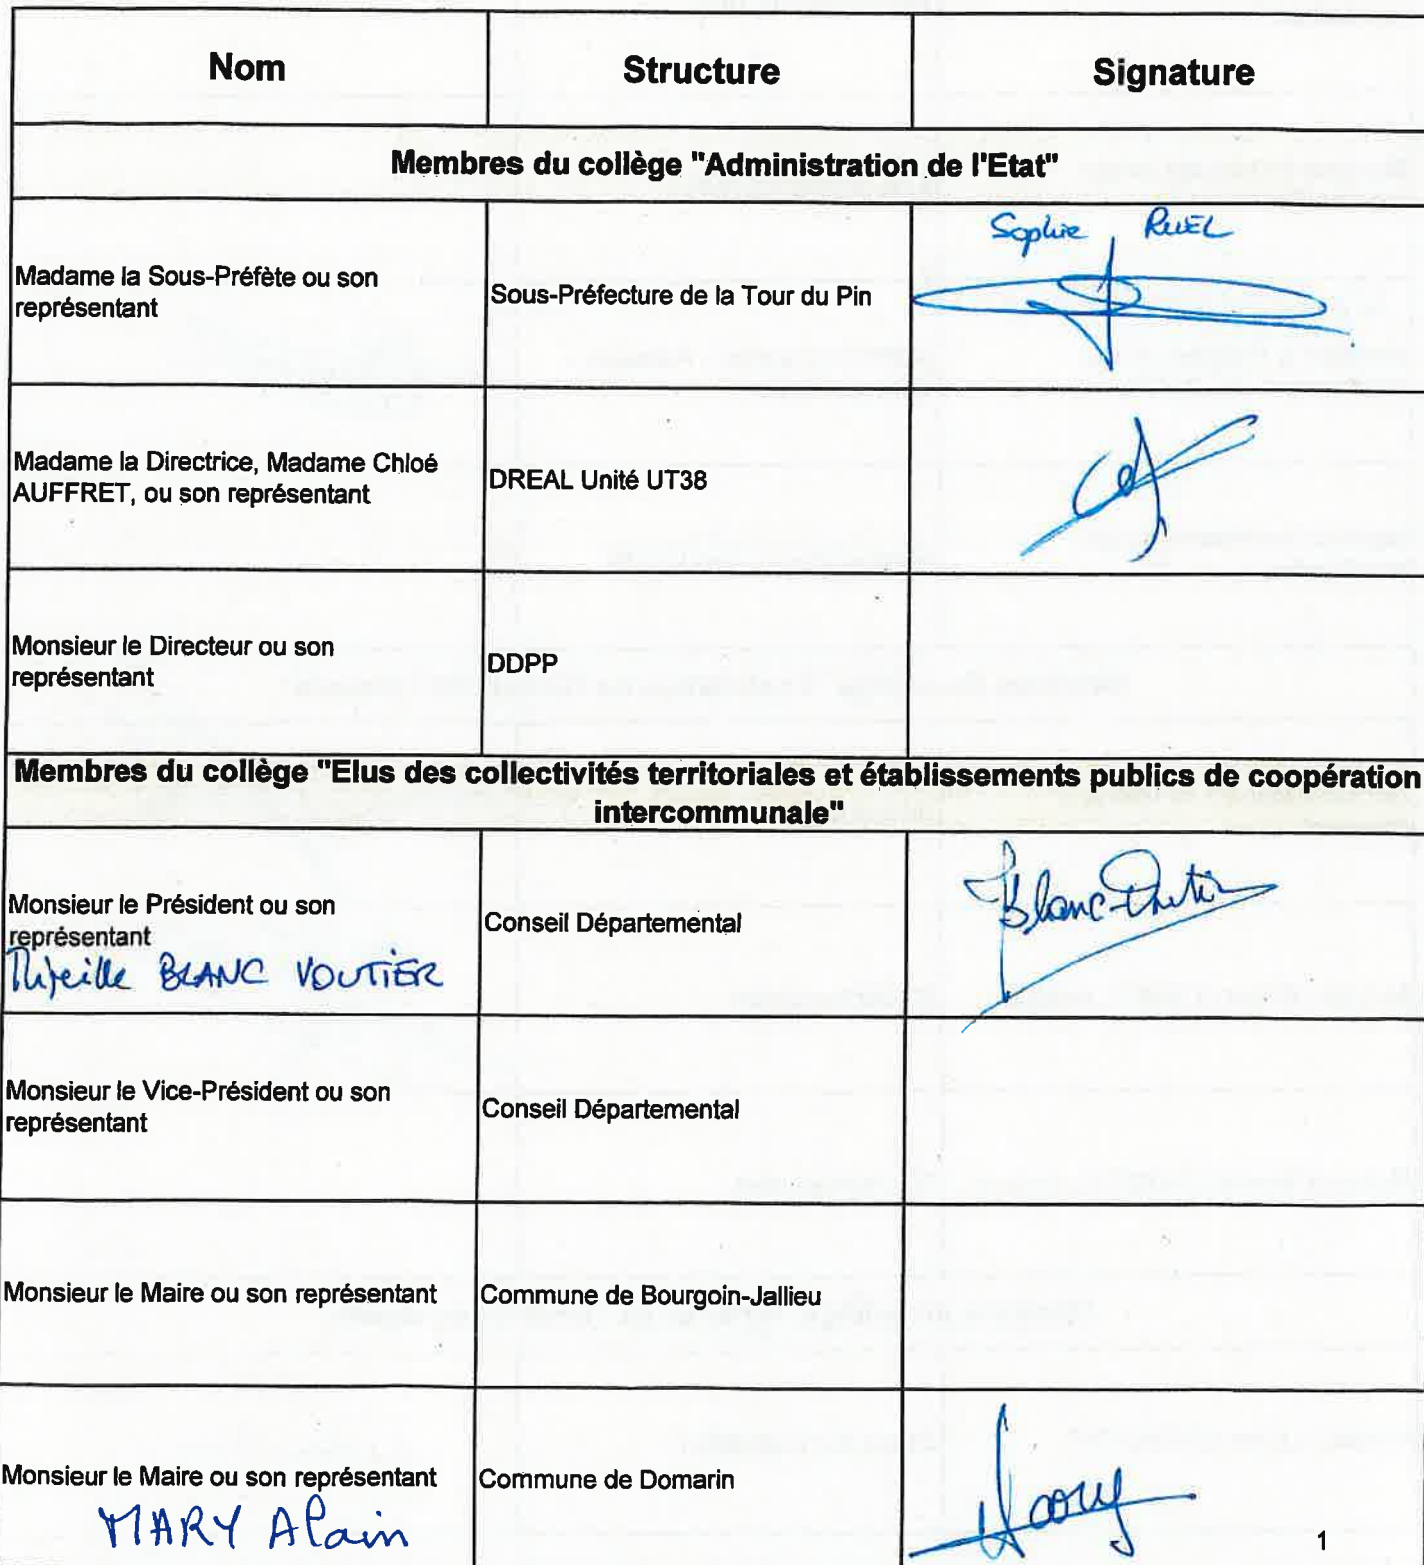 Nom Structure Signature
Membres du collège "Administration de l'Etat"
Sophie RUEL
Madame la Sous-Préfète ou son
représentant
Sous-Préfecture de la Tour du Pin
Madame la Directrice, Madame Chloé
AUFFRET, ou son représentant
DREAL Unité UT38
Monsieur le Directeur ou son
représentant
DDPP
Membres du collège "Elus des collectivités territoriales et établissements publics de coopération
intercommunale"
Monsieur le Président ou son
représentant
Mireille BLANC VOUTIER
Conseil Départemental
Blanc-Voutier
Monsieur le Vice-Président ou son
représentant
Conseil Départemental
Monsieur le Maire ou son représentant
Commune de Bourgoin-Jallieu
Monsieur le Maire ou son représentant
MARY Alain
Commune de Domarin
1